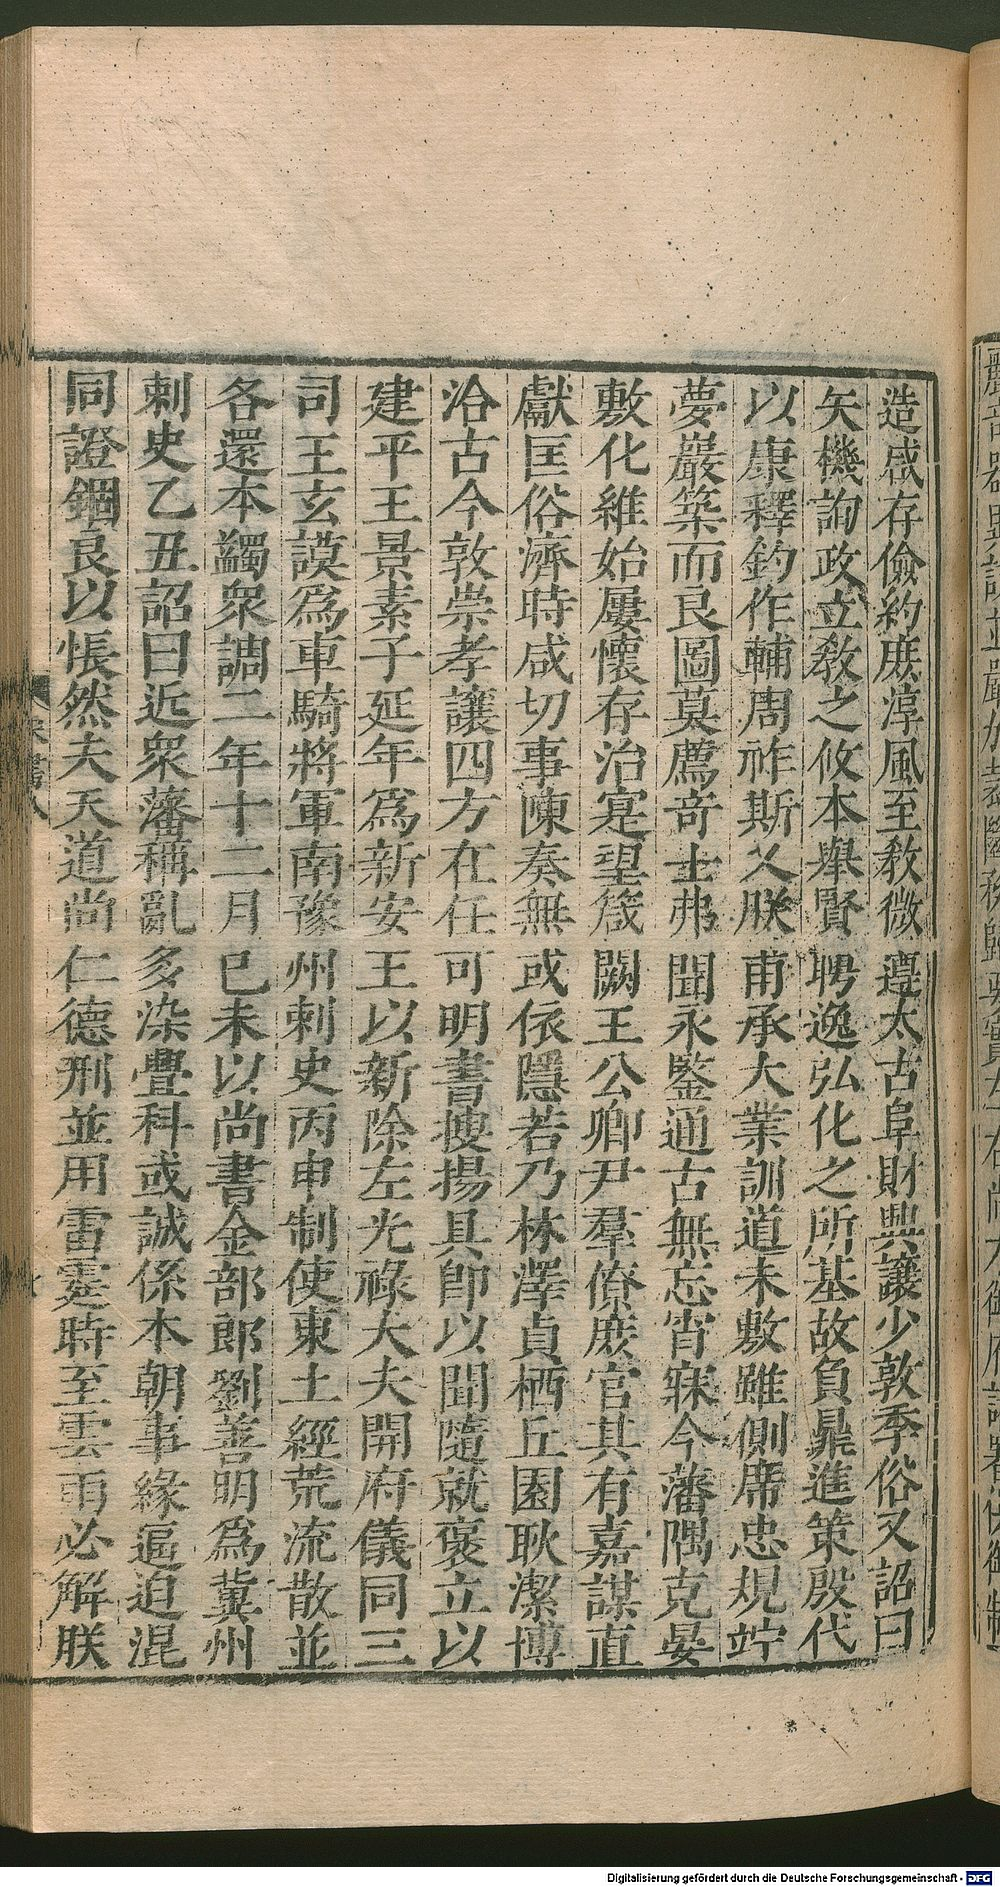 造咸存儉約庶淳風至教微遵太古阜財興讓少敦季俗又詔曰
矢機詢政立教之攸本舉賢聘逸弘化之所基故負鼎進策殷代
以康釋釣作輔周祚斯乂朕甫承大業訓道未敷雖側席忠規竚
夢巖築而良圖莫薦奇士弗聞永鑒通古無忘宵寐今藩隅克晏
敷化維始屢懷存治寔望箴闕王公卿尹羣僚庶官其有嘉謀直
獻匡俗濟時咸切事陳奏無或依隱若乃林澤貞栖丘園耿潔博
洽古今敦崇孝讓四方在任可明書搜揚具即以聞隨就褒立以
建平王景素子延年爲新安王以新除左光祿大夫開府儀同三
司王玄謨爲車騎將軍南豫州刺史丙申制使東土經荒流散並
各還本蠲衆調二年十二月己未以尚書金部郎劉善明爲冀州
刺史乙丑詔曰近衆藩稱亂多染舋科或誠係本朝事緣逼迫混
同證錮良以悵然夫天道尚仁德刑並用雷霆時至雲雨必解朕
宋書八
Digitalisierung gefördert durch die Deutsche Forschungsgemeinschaft - DFG